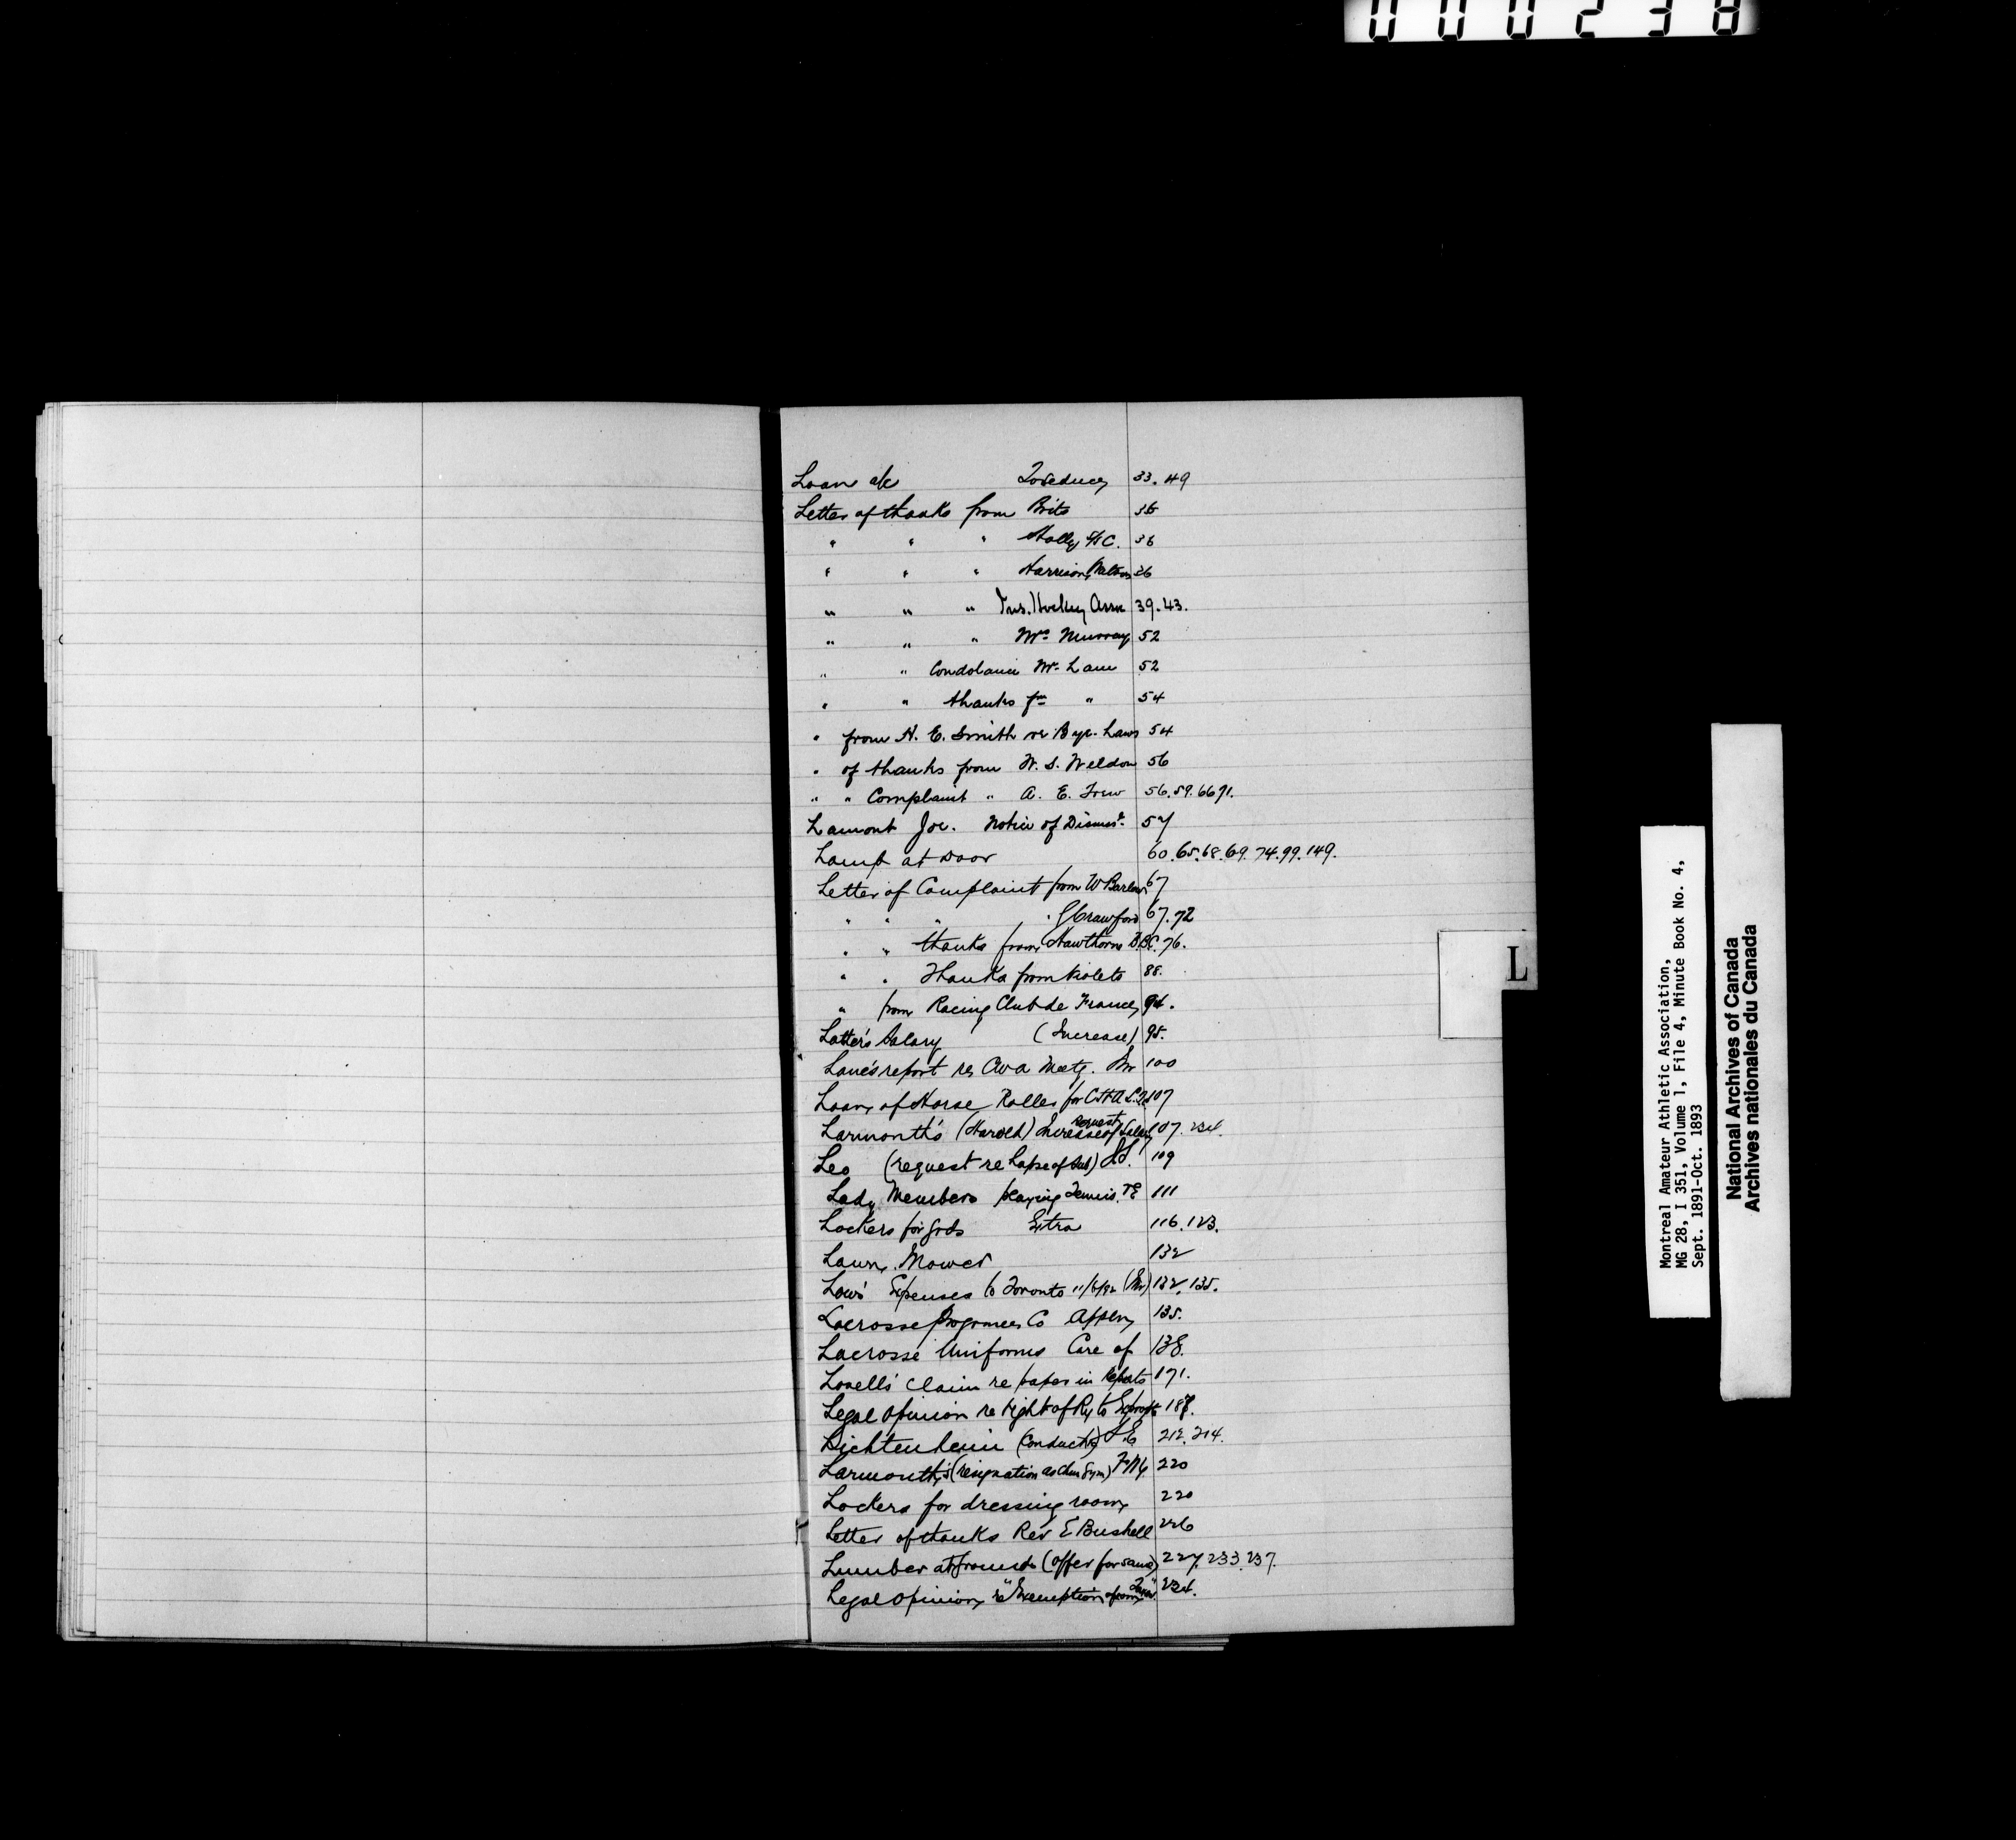 000238
Loan a/c To reduce 33. 49
Letter of thanks from Brits 36
" " " Holly S/S C. 36
" " " Harrison Watson 36
" " " Jns. Hockey Assn 39. 43.
" " " Mrs Murray 52
" " Condolance Mr Lane 52
" " thanks fm " 54
" from H. E. Smith re Bye-Laws 54
" of thanks from W. S. Weldon 56
" " Complaint " A. E. Trew 56. 59. 66 71.
Lamont Joe. Notice of 57
Lamp at Door 60. 65. 68. 69. 74. 99. 149.
Letter of Complaint from W Barlow 67
" " " " Crawford 67. 72
" " thanks from Hawthorne B.B.C. 76.
" " Thanks from Violets 88.
" from Racing Club de France 94.
Latter's Salary (Increase) 95.
Lane's report re Meetg. 100
Loan of Horse Roller for 107
Larmonth's (Harold) request Increase of Salary 107. 234.
Leo (request re Lapse of Sub) 109
Lady Members playing Tennis. 111
Lockers for Grds Extra 116. 123.
Lawn Mower 132
Low's Expenses to Toronto 11/6/92 132. 135.
Lacrosse Programme Co Appln 135.
Lacrosse Uniforms Care of 138.
Lovell's Claim re paper in Reports 171.
Legal Opinion re right of Ry to 188.
Lichtenhein (Conduct) 212. 214.
Larmonth's (resignation as Chm Gym) 220
Lockers for dressing room 220
Letter of thanks Rev E Bushell 226
Lumber at Grounds (Offer for same) 227. 233. 237.
Legal Opinion re "Exemption from Taxes" 234.
L
Montreal Amateur Athletic Association,
MG 28, I 351, Volume 1, File 4, Minute Book No. 4,
Sept. 1891-Oct. 1893
National Archives of Canada
Archives nationales du Canada